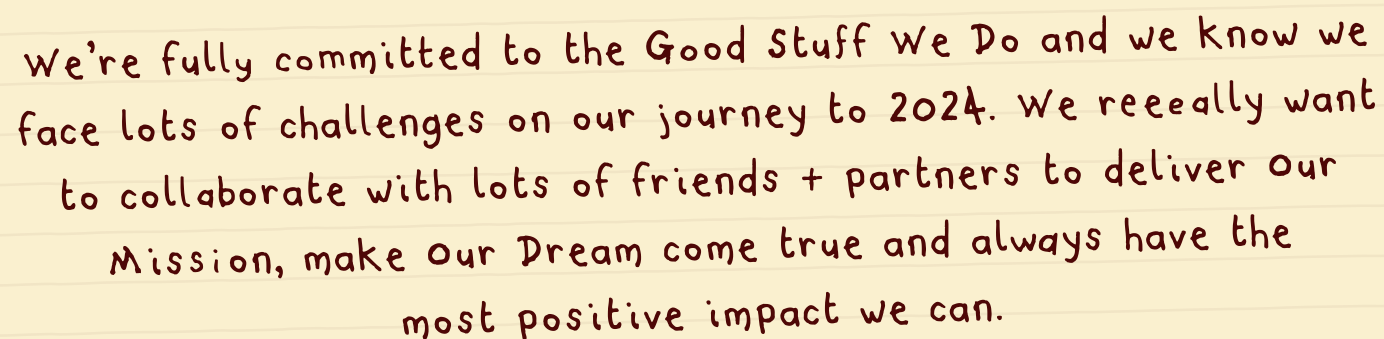 We're fully committed to the Good Stuff We Do and we know we
face lots of challenges on our journey to 2024. We reeeally want
to collaborate with lots of friends + partners to deliver Our
Mission, make Our Dream come true and always have the
most positive impact we can.